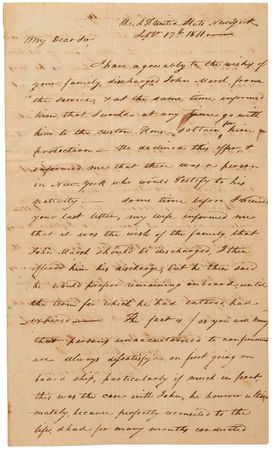 U. S. F. United States New York
Sept. 17th 1811
My Dear Sir
I have agreeably to the wishes of
your family, discharged John Marsh from
the service, & at the same time informed
him, that I would at any time go with
him to the Custom House & obtain him
protection — He declined this offer, &
informed me that there was a person
in New-York who would testify to his
nativity. — Some time before I received
your last letter, my wife informed me
that it was the wish of the family that
John Marsh should be discharged, I then
offered him his discharge, but he then said
he would prefer remaining onboard, until
the term for which he had entered, had
expired — The fact is (as you will know
that persons unaccustomed to confinement
are always dissatisfied on first going on
board ship, particularly if much in port
this was the case with John, he however ulti-
mately, became perfectly reconciled to the
life, & had for many months conducted